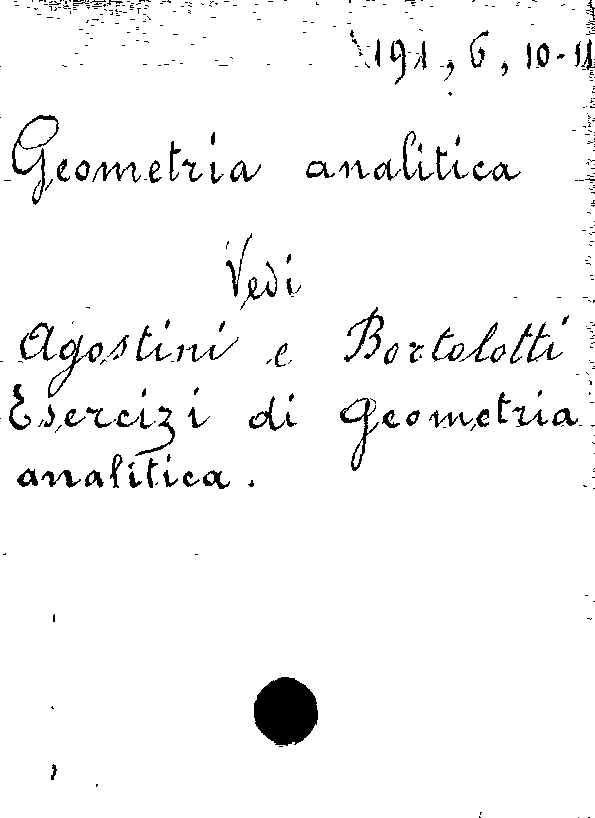 191, 6, 10-11
Geometria analitica
Vedi
Agostini e Bortolotti
Esercizi di Geometria
analitica.